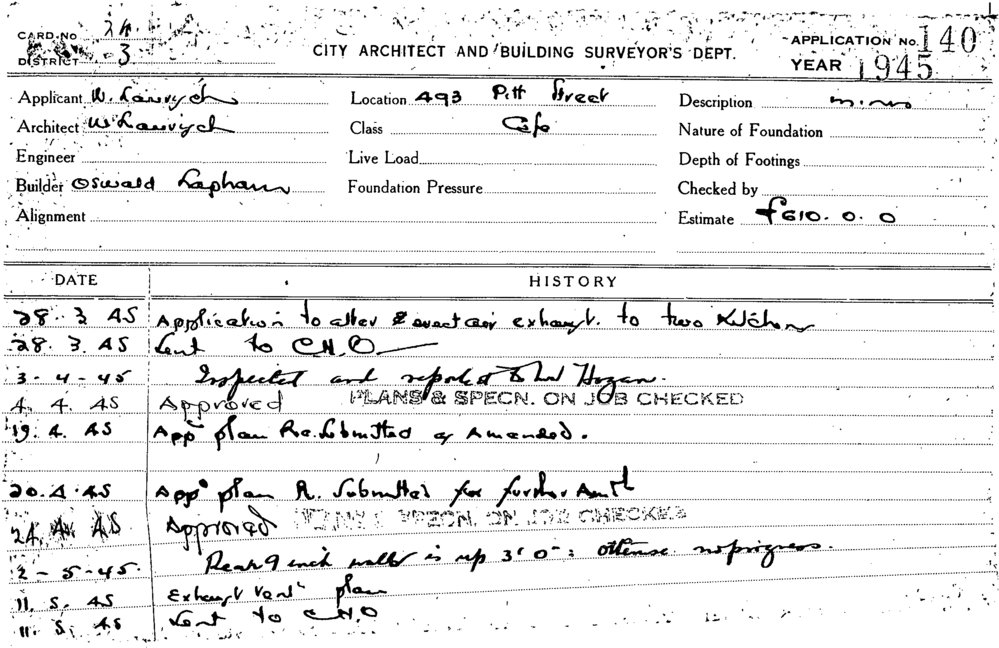 CARD No 24
DISTRICT 3
CITY ARCHITECT AND BUILDING SURVEYOR'S DEPT.
APPLICATION No. 140
YEAR 1945
Applicant W.
Location 493 Pitt Street
Description
Architect W
Class Cafe
Nature of Foundation
Engineer
Live Load
Depth of Footings
Builder Oswald Lapham
Foundation Pressure
Checked by
Alignment
Estimate £610. 0. 0
DATE HISTORY
28. 3 45 Application to alter & erect air exhaust. to two Kitchens
28. 3. 45 Sent to C.H.O.
3-4-45 Inspected and reported to Hogan.
4. 4. 45 Approved PLANS & SPECN. ON JOB CHECKED
19. 4. 45 App plan Re. Submitted as Amended.
20. 4. 45 App plan R. Submitted for further
24. 4. 45 Approved PLANS & SPECN. ON JOB CHECKED
2-5-45. Rear 9 inch wall is up 3' 0": no progress.
11. 5. 45 Exhaust vent plan
11. 5. 45 Sent to C.H.O